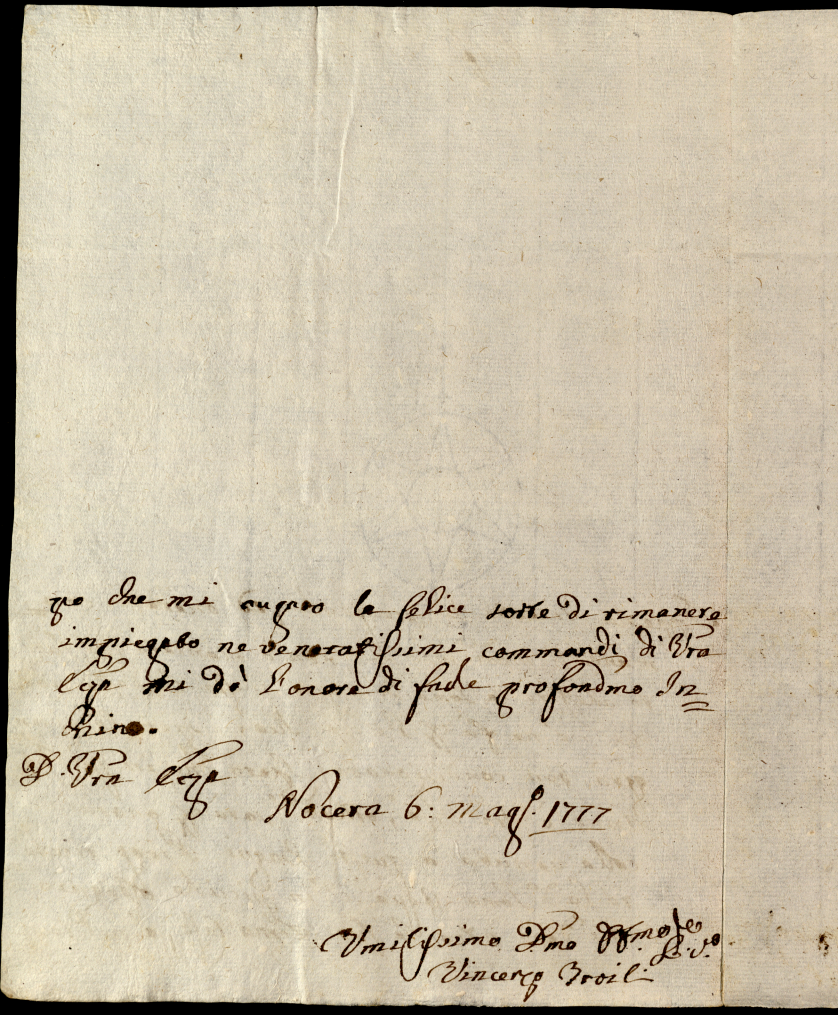 po che mi auguro la felice sorte di rimanere
impiegato ne veneratissimi commandi di Vra
Ecza mi dò l'onore di farle profondmo In=
chino.
D. Vra Ecza
Nocera 6: Magg.o 1777
Umilissimo Dmo
Vincenzo Troili